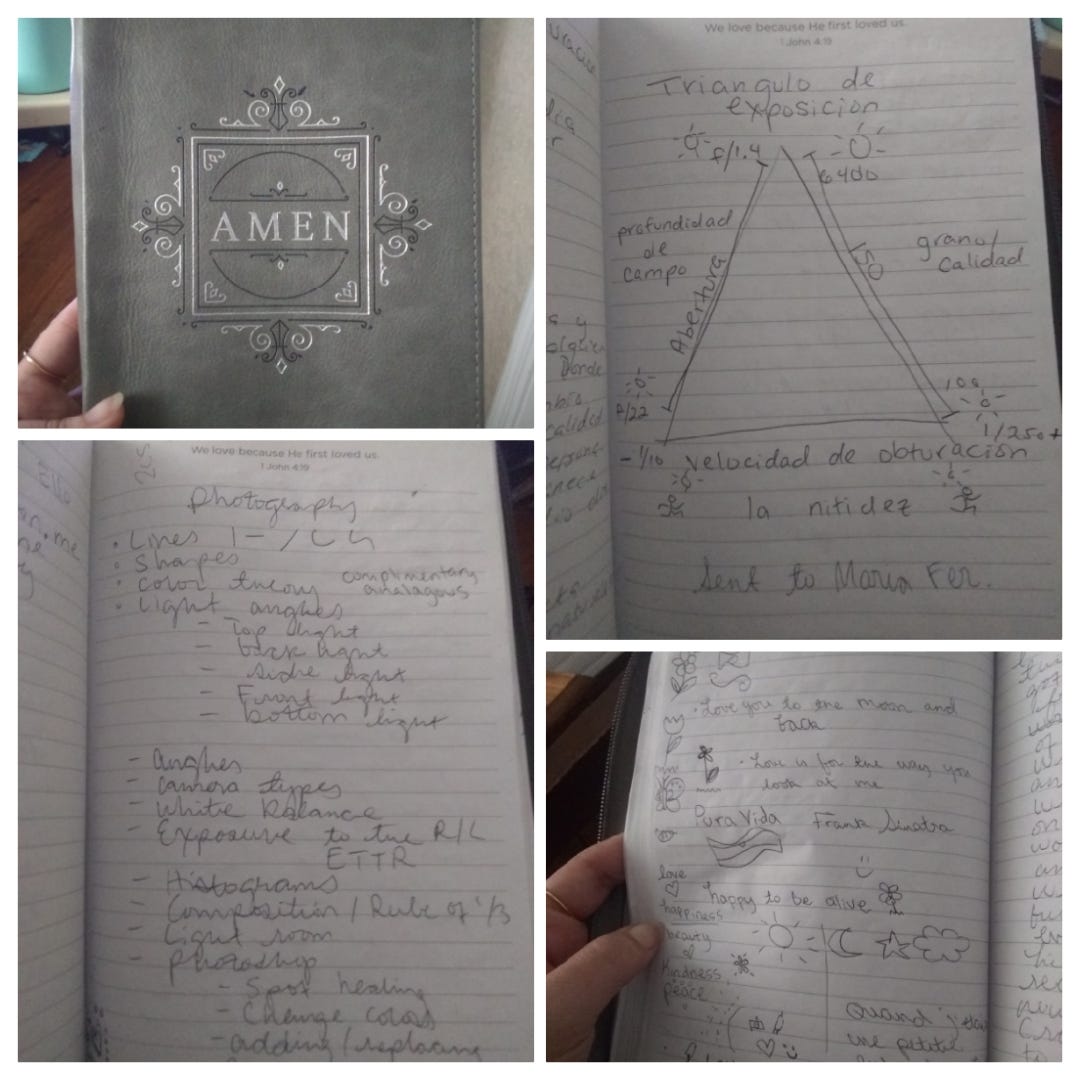 AMEN
We love because He first loved us.
1 John 4:19
Triangulo de
exposicion
f/1.4
6400
profundidad
de
campo
Abertura
ISO
grano/
calidad
f/22
100
1/250+
- 1/10 velocidad de obturación
la nitidez
Sent to Maria Fer.
Donde
calidad
We love because He first loved us.
1 John 4:19
photography
• Lines | - /
• Shapes
• Color theory complimentary
analagous
• Light anghes
- Top light
- back light
- side light
- Front light
- bottom light
- anghes
- camera types
- White Balance
- Exposure to the R/L
ETTR
- Histograms
- Composition / Rule of 1/3
- Light room
- photoshop
- Spot healing
- Change colors
- adding / replacing
• Love you to the moon and
back
• Love is for the way you
look at me
Pura Vida Frank Sinatra
love
happy to be alive
happiness
beauty
Kindness
peace
Quand j'
une petite